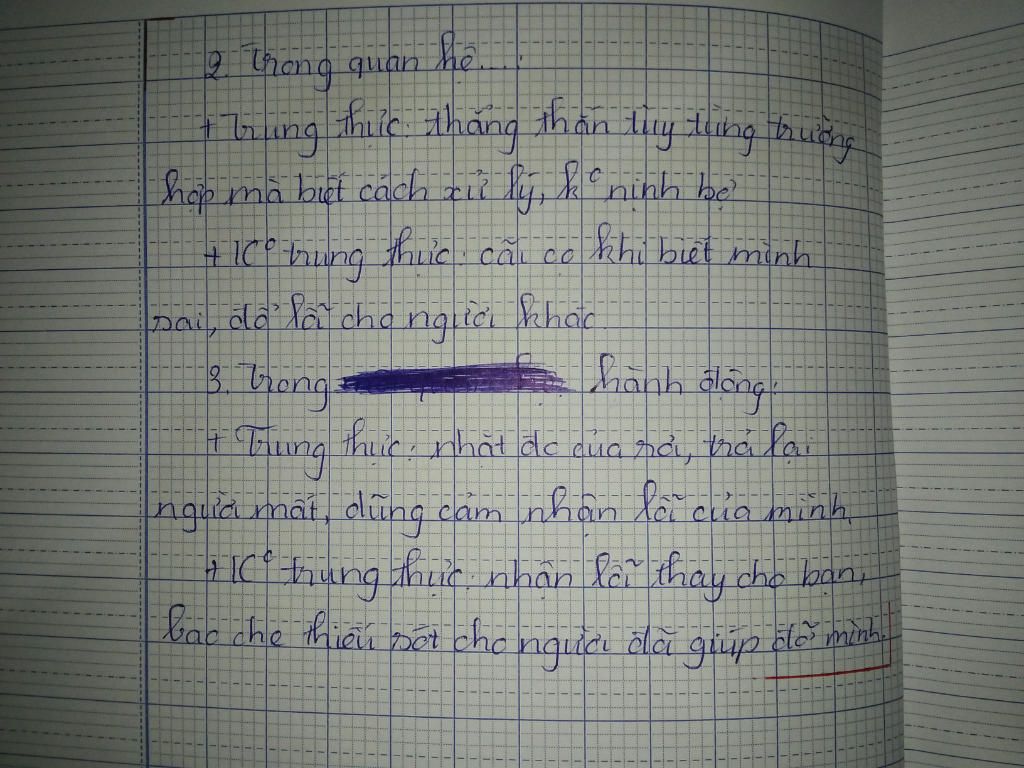 2. Trong quan hệ...:
+ Trung thực: thẳng thắn tùy từng trường
hợp mà biết cách xử lý, k° nịnh bợ
+ K° trung thực: cãi cọ khi biết mình
sai, đổ lỗi cho người khác.
3. Trong hành động:
+ Trung thực: nhặt đc của rơi, trả lại
người mất, dũng cảm nhận lỗi của mình.
+ K° trung thực: nhận lỗi thay cho bạn,
bao che thiếu sót cho người đã giúp đỡ mình.